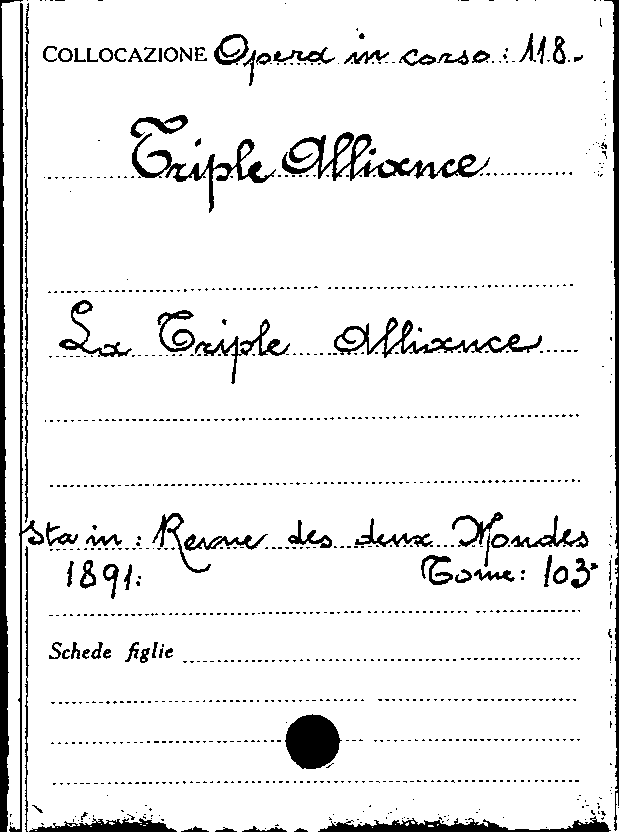 COLLOCAZIONE Opera in corso: 118.
Triple Alliance
La Triple Alliance
Sta in: Revue des deux Mondes
1891: Tome: 103°
Schede figlie